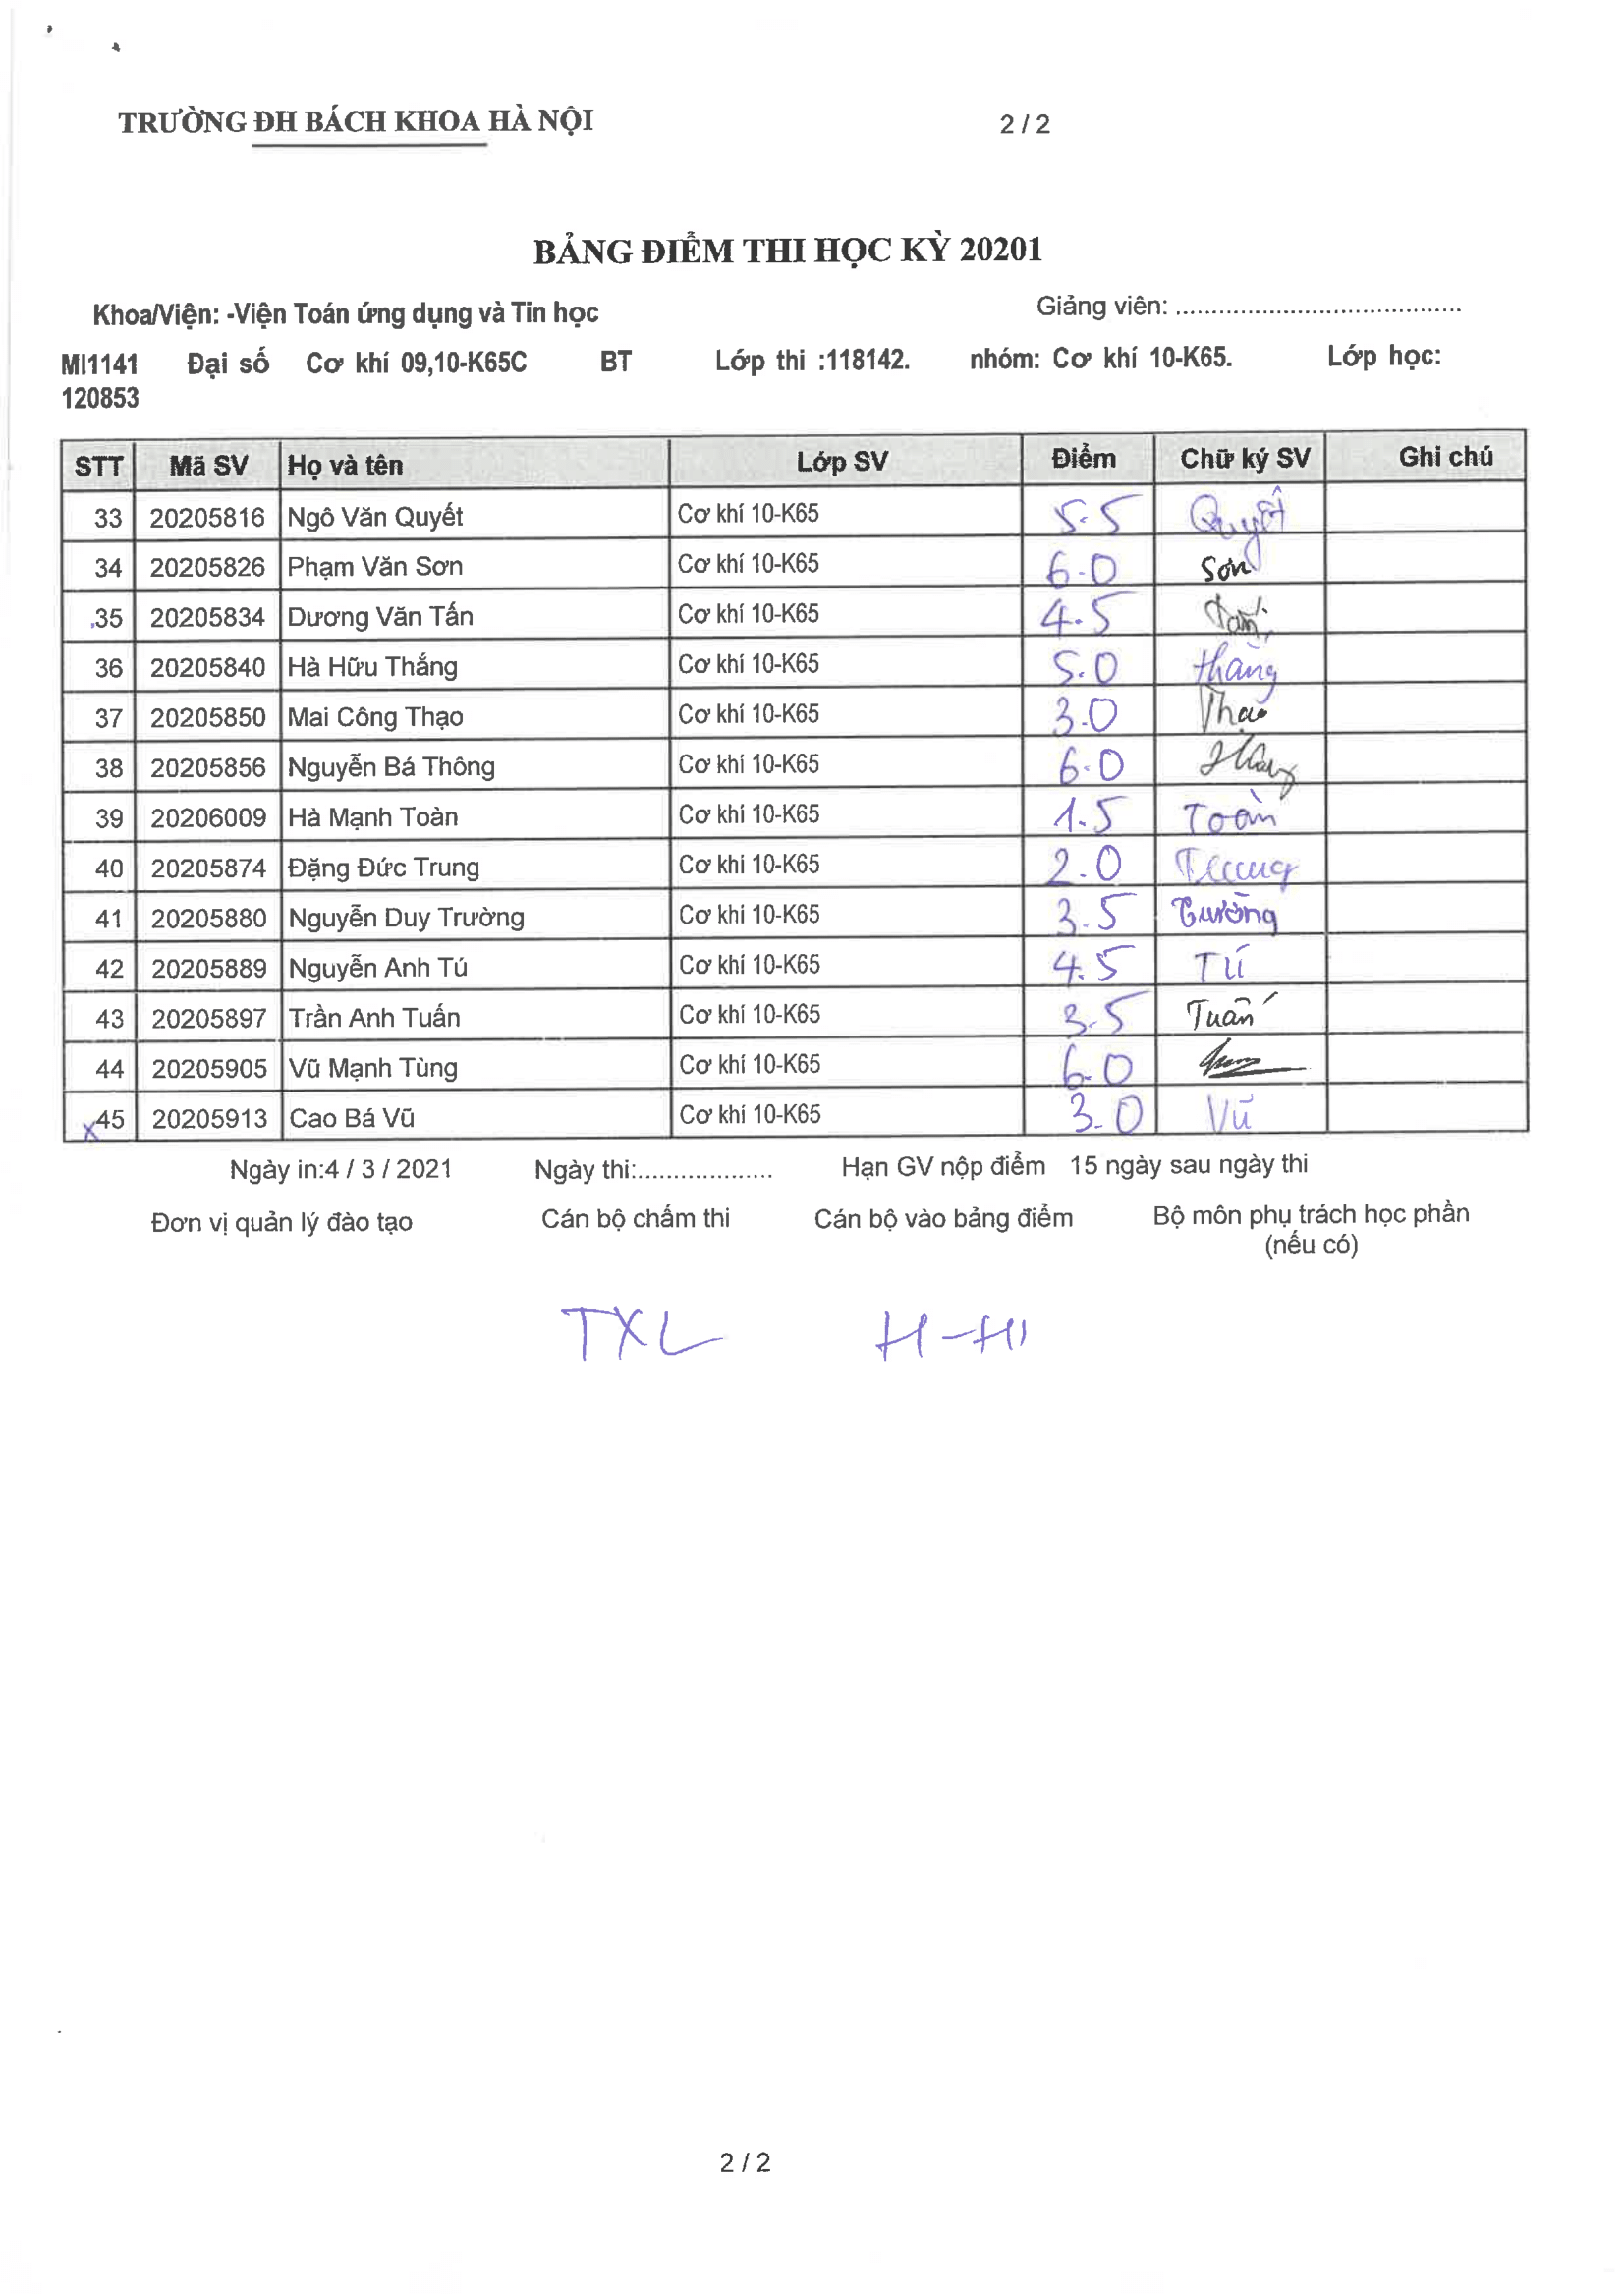 TRƯỜNG ĐH BÁCH KHOA HÀ NỘI 2 / 2
BẢNG ĐIỂM THI HỌC KỲ 20201
Khoa/Viện: -Viện Toán ứng dụng và Tin học Giảng viên: ........................................
MI1141 Đại số Cơ khí 09,10-K65C BT Lớp thi :118142. nhóm: Cơ khí 10-K65. Lớp học:
120853
STT Mã SV Họ và tên Lớp SV Điểm Chữ ký SV Ghi chú
33 20205816 Ngô Văn Quyết Cơ khí 10-K65 5.5 Quyết
34 20205826 Phạm Văn Sơn Cơ khí 10-K65 6.0 Sơn
35 20205834 Dương Văn Tấn Cơ khí 10-K65 4.5 Tấn
36 20205840 Hà Hữu Thắng Cơ khí 10-K65 5.0 thắng
37 20205850 Mai Công Thạo Cơ khí 10-K65 3.0 Thạo
38 20205856 Nguyễn Bá Thông Cơ khí 10-K65 6.0
39 20206009 Hà Mạnh Toàn Cơ khí 10-K65 1.5 Toàn
40 20205874 Đặng Đức Trung Cơ khí 10-K65 2.0 Trung
41 20205880 Nguyễn Duy Trường Cơ khí 10-K65 3.5 Trường
42 20205889 Nguyễn Anh Tú Cơ khí 10-K65 4.5 Tú
43 20205897 Trần Anh Tuấn Cơ khí 10-K65 3.5 Tuấn
44 20205905 Vũ Mạnh Tùng Cơ khí 10-K65 6.0
x45 20205913 Cao Bá Vũ Cơ khí 10-K65 3.0 Vũ
Ngày in:4 / 3 / 2021 Ngày thi:................... Hạn GV nộp điểm 15 ngày sau ngày thi
Đơn vị quản lý đào tạo Cán bộ chấm thi Cán bộ vào bảng điểm Bộ môn phụ trách học phần
(nếu có)
TXL
2 / 2